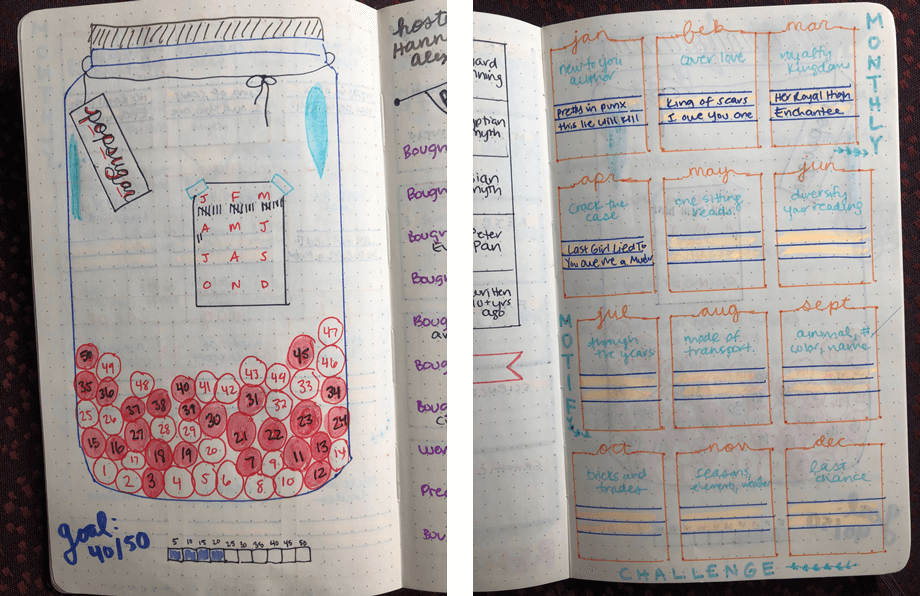 popsugar
J F M
A M J
J A S
O N D
47
50 45 46
49 43 44
48 40 41 42 33 34
35 36 37 38 39 31 32
25 26 28 29 30 23 24
27 21 22
15 16 18 19 20 11 13 14
17 7 9
1 2 3 4 5 6 8 10 12
goal:
40/50
5 10 15 20 25 30 35 40 45 50
host
Hann
Bough
Bough
Bough
Bough
Boug
Boug
Boug
Wor
Pre
Bou
ard
ning
ptian
myth
ian
myth
Peter
Pan
written
yrs
ago
MONTHLY
MOTIF
CHALLENGE
jan
new to you
author
pretty in punx
this lie will kill
feb
cover love
King of scars
I owe you one
mar
royalty
kingdom
Her Royal High
Enchantee
apr
crack the
case
Last Girl Lied To
You owe me a Murder
may
one sitting
reads
jun
diversify
your reading
jul
through
the years
aug
mode of
transport.
sept
animal, #,
color, name
oct
tricks and
trades
nov
seasons,
elements, weather
dec
last
chance